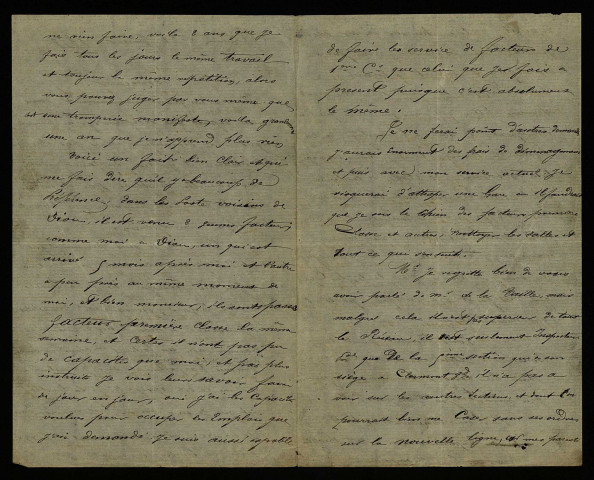 ne rien faire, voila 2 ans que je
fais tous les jours le même travail
et toujour la même répétition, alors
vous pouvez juger par vous même que
est une tromperie manifeste, voila grandement
un an que je n'apprend plus rien
Voici un fait bien clair et qui
me fais dire quil y a beaucoup de
dans les Poste voisins de
il est venu 2 jeunes facteurs
comme moi a un qui est
arrivé 5 mois après moi et l'autre
a peu près au même moment de
moi, et bien monsieur, ils sont passé
facteur première classe la même
semaine, et certes ils n'ont pas plus
de capacités que moi, et pas plus
instruits je vois leur savoir faire
de jour en jour, moi j'ai les capacité
voulus pour occuper les Emplois que
j'ai demandé je suis aussi capable
de faire les service de facteur de
1ère Cl. que celui que je fais a
present puisque c'est absolument
le même.
Je ne ferai point d'autres demande
j'aurais énormément des frais de déménagement
et puis avec mon service actuel je
risquerai d'attraper une Gare ou il faudrait
que je sois le des facteurs première
Classe et autres, nettoyer les salles et
tout ce que
Mr je regrette bien de vous
avoir parlé de Mr de la mais
malgré cela il n'est pas de tout
le Réseau, il est seulement Inspecteur
que de la section qui a son
siège a Clermont Fd il n'a pas a
voir sur les autres sections, et dont Con
pourrait bien me Caser sans ses ordres
sur la nouvelle ligne, mes parents